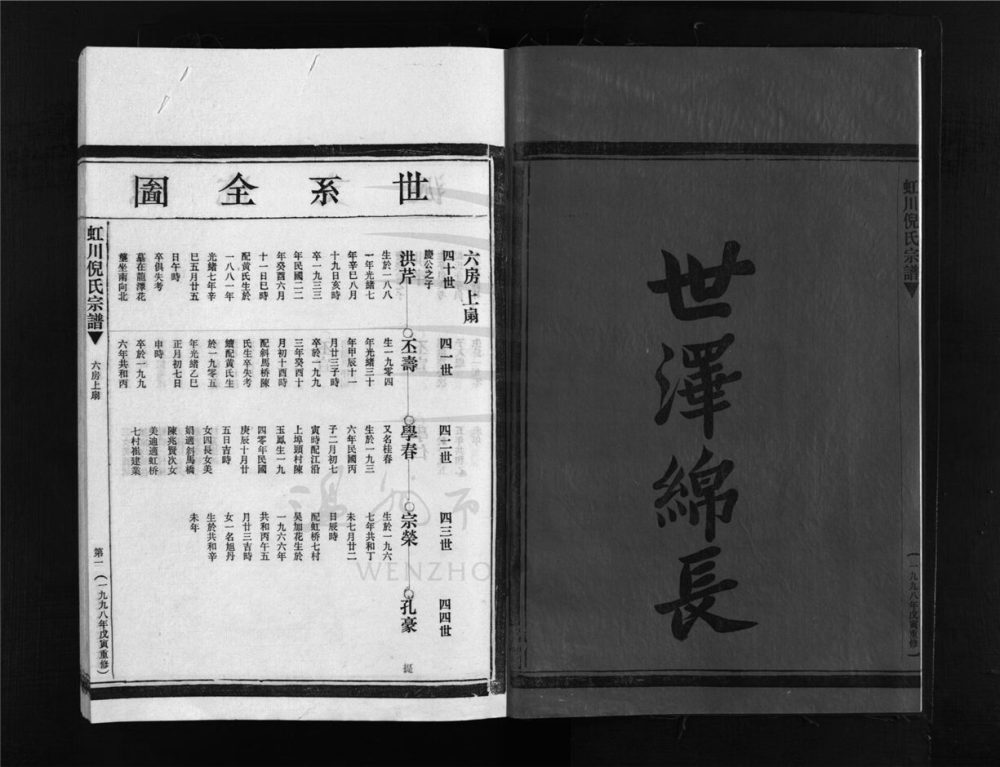 世澤綿長
虹川倪氏宗譜
(一九九八年戊寅重修)
世系全圖
六房上扇
四十世
慶公之子
洪芹
生於一八八
一年光緒七
年辛巳八月
十九日亥時
卒一九三三
年民國二二
年癸酉六月
十一日巳時
配黃氏生於
一八八一年
光緒七年辛
巳五月廿五
日午時
卒俱失考
墓在龍潭花
墓坐南向北
四一世
丕壽
生一九零四
年光緒三十
年甲辰十一
月廿三子時
卒於一九九
三年癸酉十
月初十酉時
配斜馬橋陳
氏生卒失考
續配黃氏生
於一九零五
年光緒乙巳
正月初七日
申時
卒於一九九
六年共和丙
四二世
學春
又名桂春
生於一九三
六年民國丙
子二月初七
寅時配江沿
上埠頭村陳
玉鳳生一九
四零年民國
庚辰十月廿
五日吉時
女四長女美
娟適斜馬橋
陳兆賢次女
美迪適虹桥
七村崔建業
四三世
宗榮
生於一九六
七年共和丁
未七月廿二
日辰時
配虹桥七村
吴旭花生於
一九六六年
共和丙午五
月廿三吉時
女一名旭丹
生於共和辛
未年
四四世
孔豪
虹川倪氏宗譜
六房上扇
第一
(一九九八年戊寅重修)
WENZHO